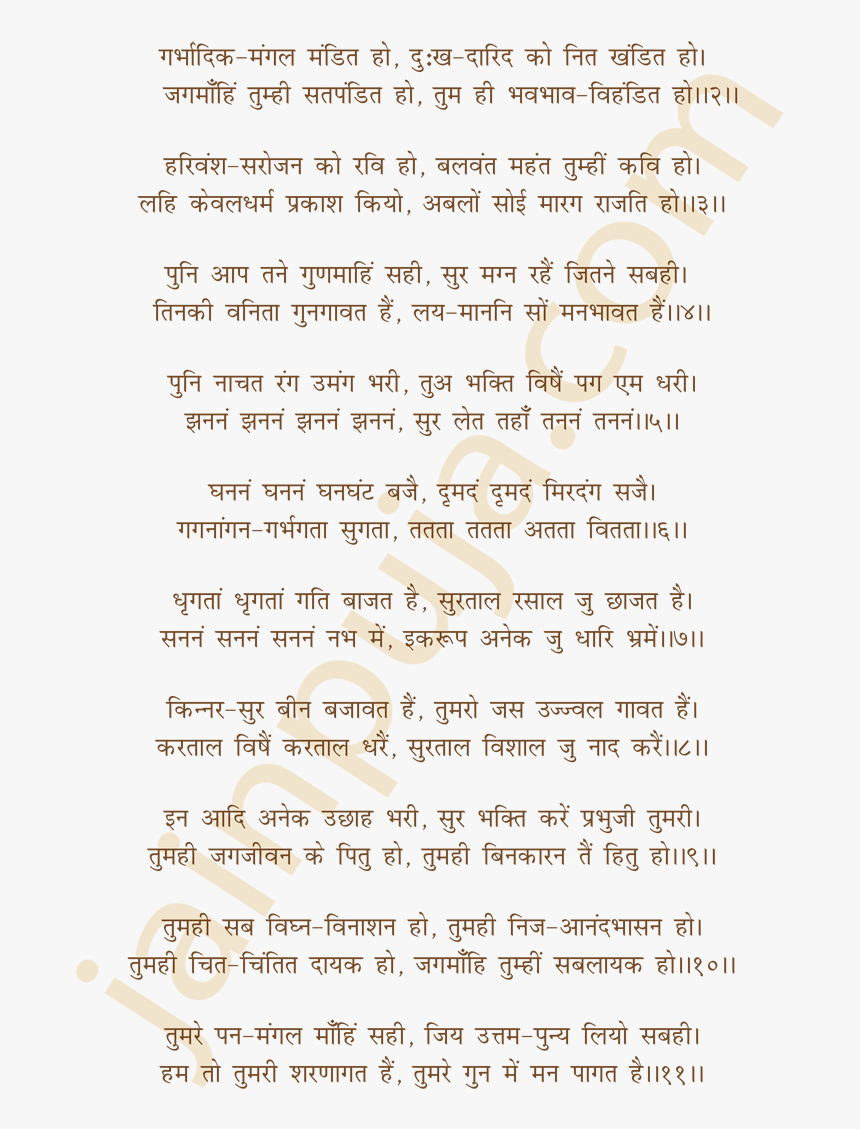 गर्भादिक–मंगल मंडित हो, दु:ख–दारिद को नित खंडित हो।
जगमाँहिं तुम्ही सतपंडित हो, तुम ही भवभाव–विहंडित हो।।२।।
हरिवंश–सरोजन को रवि हो, बलवंत महंत तुम्हीं कवि हो।
लहि केवलधर्म प्रकाश कियो, अबलों सोई मारग राजति हो।।३।।
पुनि आप तने गुणमाहिं सही, सुर मग्न रहैं जितने सबही।
तिनकी वनिता गुनगावत हैं, लय–माननि सों मनभावत हैं।।४।।
पुनि नाचत रंग उमंग भरी, तुअ भक्ति विषैं पग एम धरी।
झननं झननं झननं झननं, सुर लेत तहाँ तननं तननं।।५।।
घननं घननं घनघंट बजै, दृमदं दृमदं मिरदंग सजै।
गगनांगन–गर्भगता सुगता, ततता ततता अतता वितता।।६।।
धृगतां धृगतां गति बाजत है, सुरताल रसाल जु छाजत है।
सननं सननं सननं नभ में, इकरूप अनेक जु धारि भ्रमें।।७।।
किन्नर–सुर बीन बजावत हैं, तुमरो जस उज्ज्वल गावत हैं।
करताल विषैं करताल धरैं, सुरताल विशाल जु नाद करैं।।८।।
इन आदि अनेक उछाह भरी, सुर भक्ति करें प्रभुजी तुमरी।
तुमही जगजीवन के पितु हो, तुमही बिनकारन तैं हितु हो।।९।।
तुमही सब विघ्न–विनाशन हो, तुमही निज–आनंदभासन हो।
तुमही चित–चिंतित दायक हो, जगमाँहि तुम्हीं सबलायक हो।।१०।।
तुमरे पन–मंगल माँहिं सही, जिय उत्तम–पुन्य लियो सबही।
हम तो तुमरी शरणागत हैं, तुमरे गुन में मन पागत है।।११।।
jainpuja.com